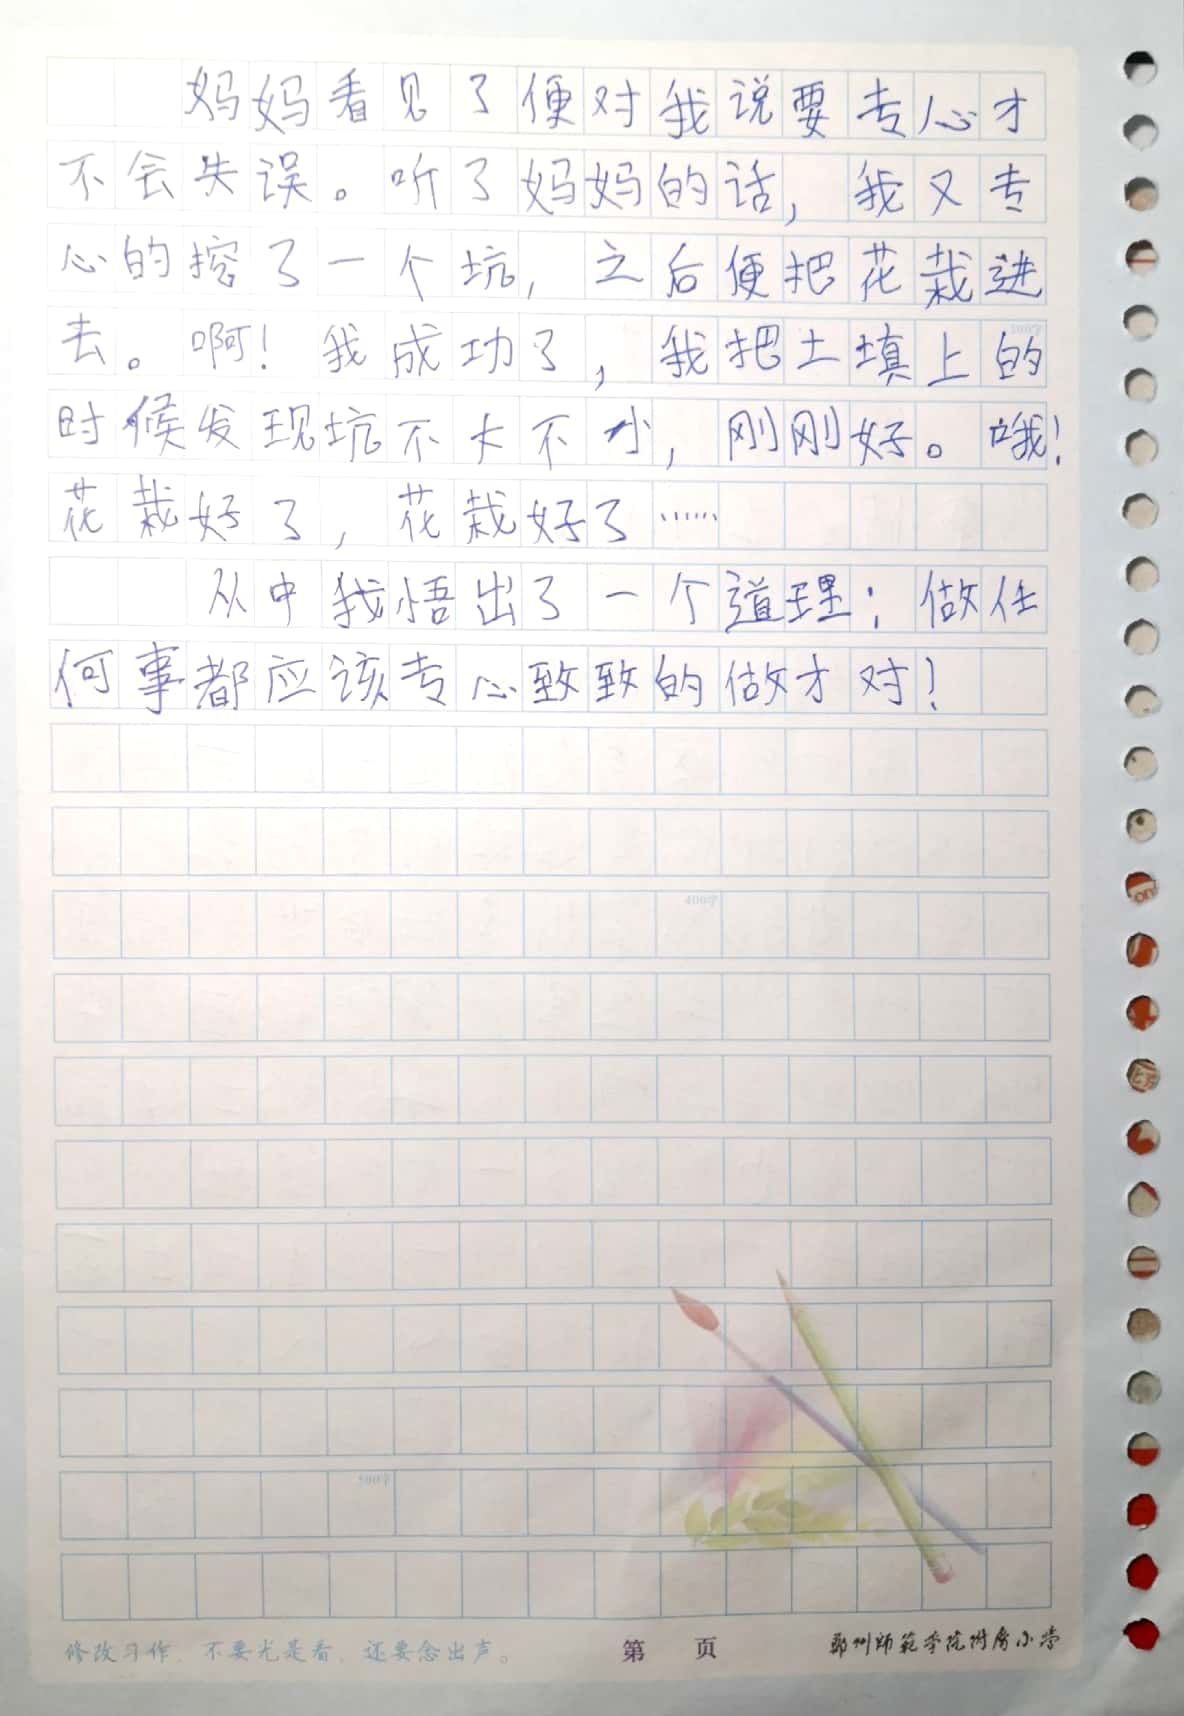 妈妈看见了便对我说要专心才
不会失误。听了妈妈的话，我又专
心的挖了一个坑，之后便把花栽进
去。啊！我成功了，我把土填上的
300字
时候发现坑不大不小，刚刚好。哦！
花栽好了，花栽好了……
从中我悟出了一个道理：做任
何事都应该专心致致的做才对！
400字
500字
修改习作，不要光是看，还要念出声。
第 页
郑州师范学院附属小学